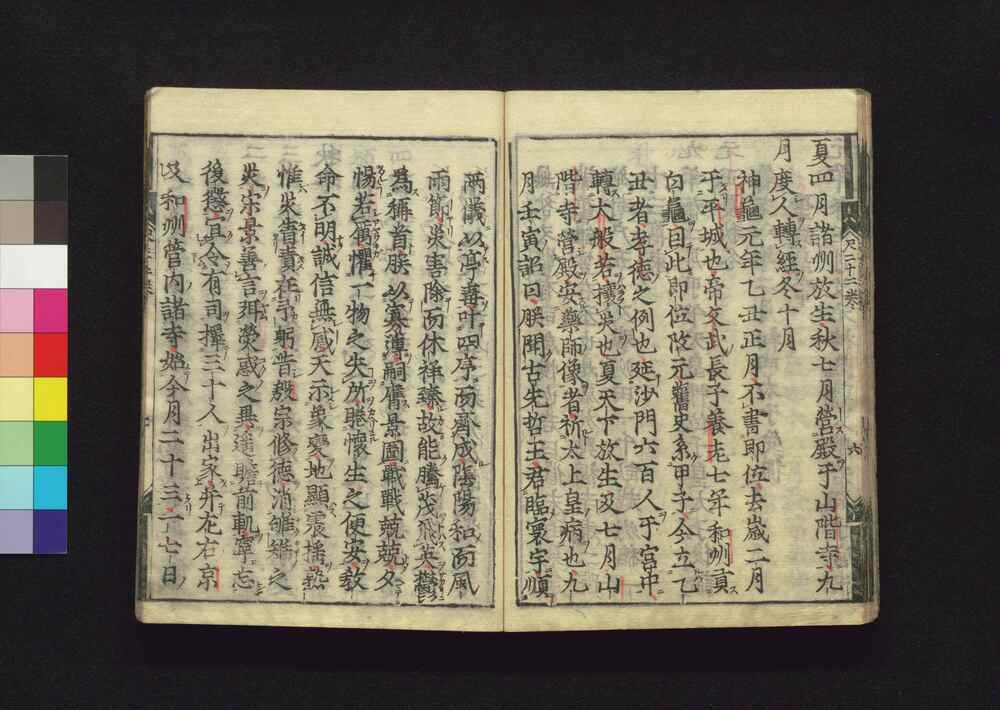 夏四月諸州放生秋七月營殿于山階寺九
月度人轉經冬十月
神龜元年乙丑正月不書即位去歲二月
于平城也帝文武長子養老七年和州貢
白龜曰此即位改元舊史系甲子今立乙
丑者孝德之例也延沙門六百人于宮中
轉大般若攘災也夏天下放生及七月山
階寺營殿安藥師像者祈太上皇病也九
月壬寅詔曰朕聞古先哲王君臨寰宇順
兩儀以亭毒叶四序而齊成陰陽和而風
雨節災害除而休祥臻故能騰茂飛英欝
為稱首朕以寡薄嗣膺景圖戰戰兢兢夕
惕若厲懼一物之失所睠懷生之便安教
命不明誠信無感天示象變地顯震搖
惟災眚責在予躬昔殷宗修德消雊雉之
災宋景善言弭熒惑之異遥瞻前軌寧忘
後懲宜令有司擇三十人出家并左右京
及和州管内諸寺始今月二十三二七日
六